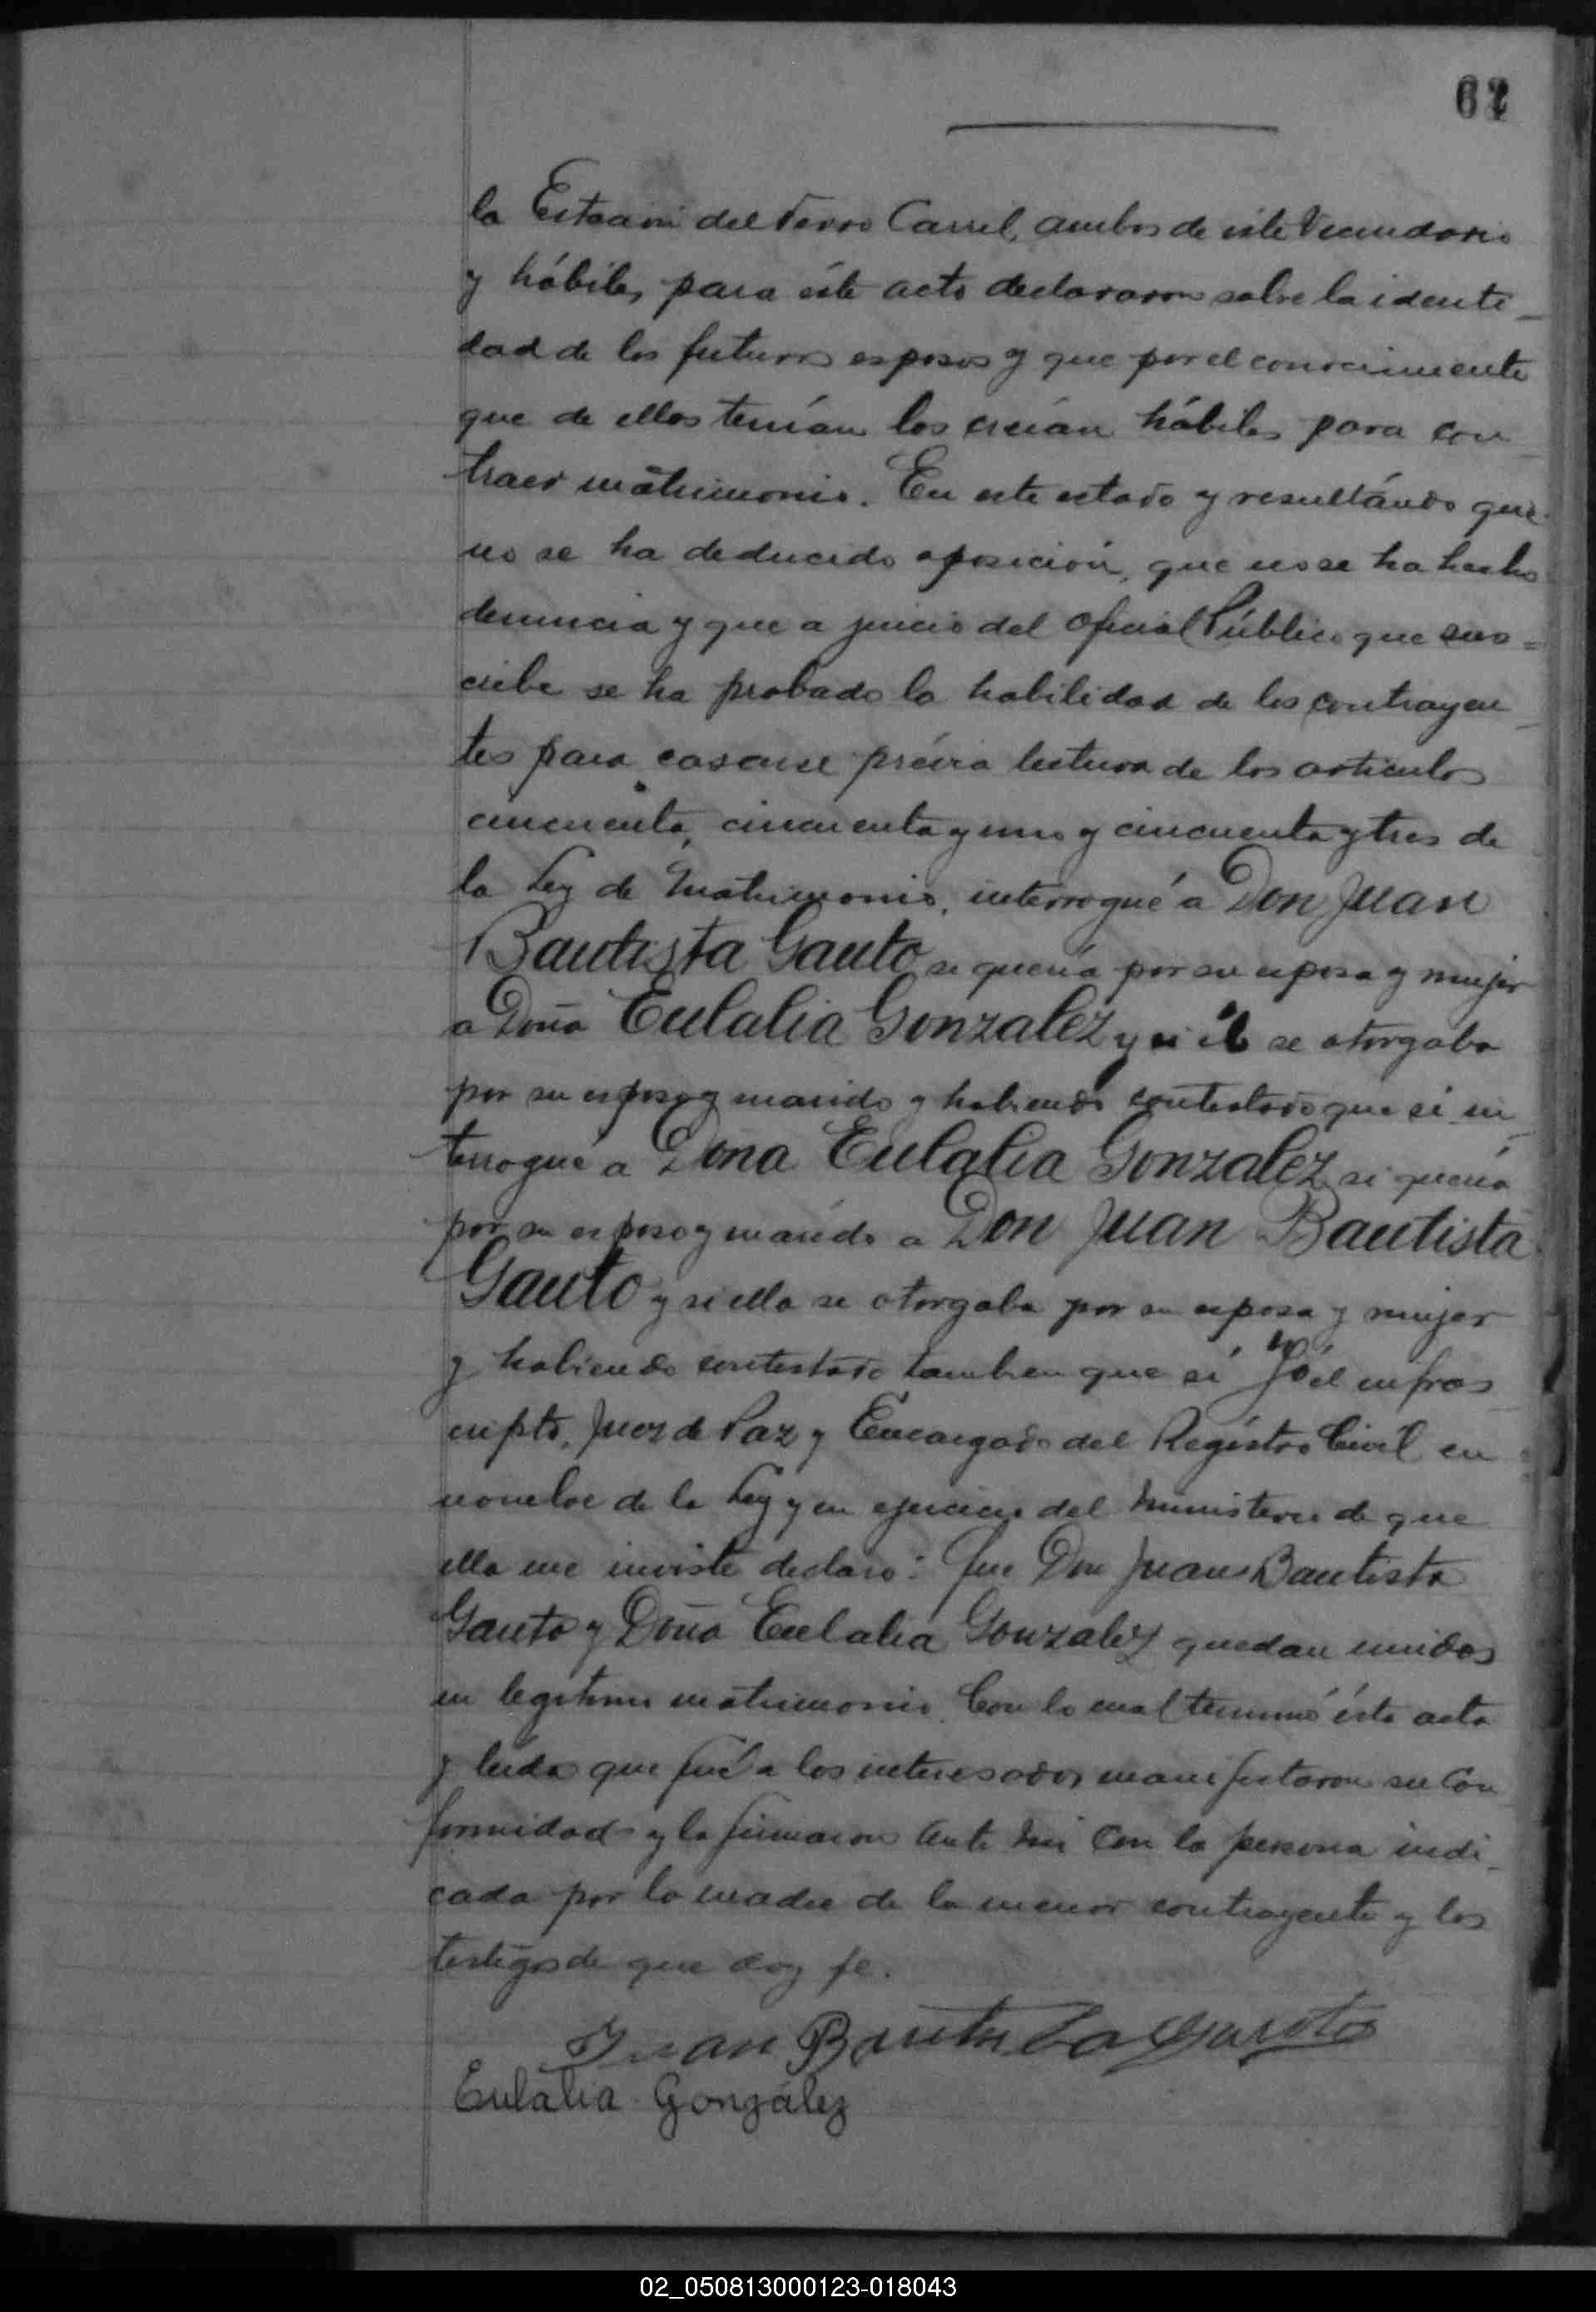 62
la Estación del Ferro Carril, ambos de este Vecindario
y hábiles para éste acto declararon sobre la identi-
dad de los futuros esposos y que por el conocimiento
que de ellos tenían los creían hábiles para con-
traer matrimonio. En este estado y resultándo que
no se ha deducido oposición, que no se ha hecho
denuncia y que a juicio del Oficial Público que sus=
cribe se ha probado la habilidad de los contrayen-
tes para casarse prévia lectura de los articulos
cincuenta, cincuenta y uno y cincuenta y tres de
la Ley de Matrimonio, interrogué a Don Juan
Bautista Gauto si quería por su esposa y mujer
a Doña Eulalia Gonzalez y si él se otorgaba
por su esposo y marido y habiendo contestado que si in-
terrogué a Doña Eulalia Gonzalez si quería
por su esposo y marido a Don Juan Bautista
Gauto y si ella se otorgaba por su esposa y mujer
y habiendo contestado tambien que sí Yo el infras-
cripto, Juez de Paz y Encargado del Registro Civil en
nombre de la Ley y en ejercicio del ministerio de que
ella me inviste declaro: Que Don Juan Bautista
Gauto y Doña Eulalia Gonzalez quedan unidos
en legitimo matrimonio. Con lo cual terminó ésta acta
y leida que fué a los interesados manifestaron su con
formidad y la firmaron ante mi con la persona indi-
cada por la madre de la menor contrayente y los
testigos de que doy fe.
Juan Bautista Gauto
Eulalia González
02_050813000123-018043